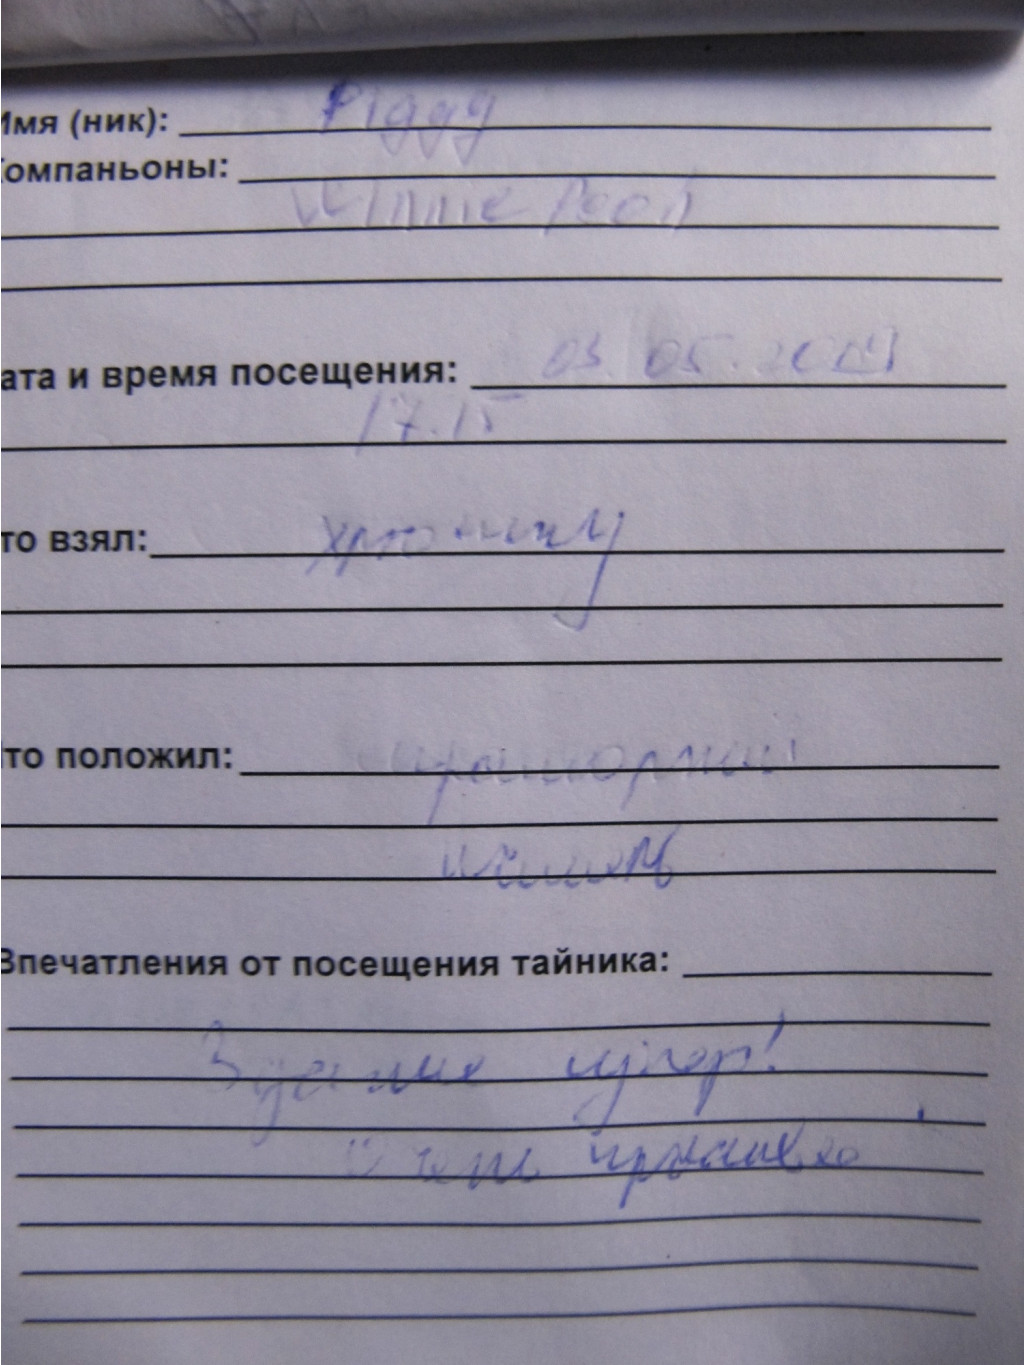 Имя (ник): Piggy
Компаньоны:
Winnie Pooh
ата и время посещения: 03.05.2009
17.15
то взял: хрюшку
то положил:
Впечатления от посещения тайника:
Здание супер!
Очень красиво